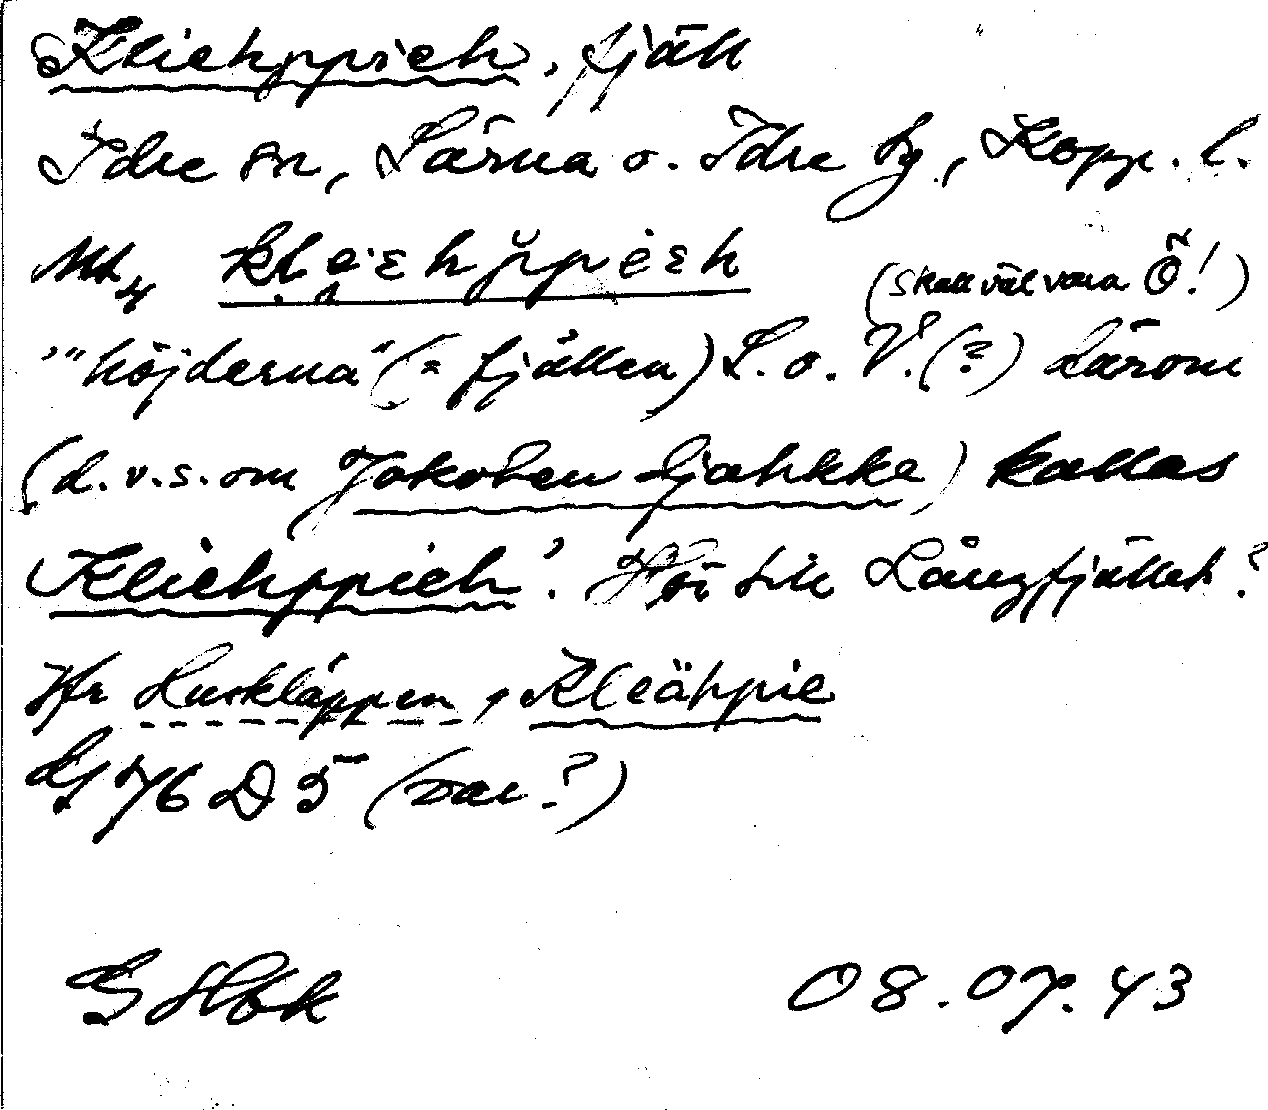 Kliehppieh, fjäll
Idre sn, Särna o. Idre by, Kopp. l.
(skall väl vara Ö!)
"höjderna" (= fjällen) S. o. V. (?) därom
(d.v.s. om Jakoben tjahkke) kallas
Kliehppieh'. Hör till Långfjället?
Jfr Huskläppen, Kleähpie
76 D 5
08.07.43